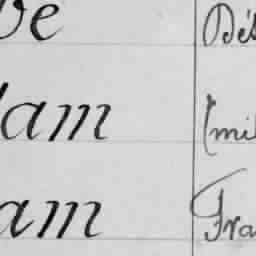 ve Dés
lam Emil
am Fra